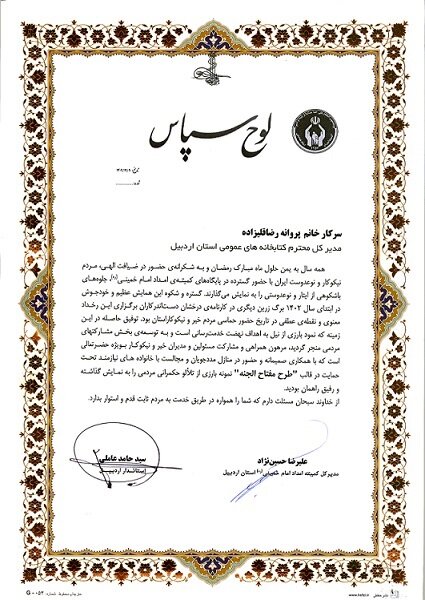 لوح سپاس
سرکار خانم پروانه رضاقلیزاده
مدیر کل محترم کتابخانه های عمومی استان اردبیل
همه سال به یمن حلول ماه مبارک رمضان و به شکرانه‌ی حضور در ضیافت الهی، مردم
نیکوکار و نوعدوست ایران با حضور گسترده در پایگاه‌های کمیته‌ی امداد امام خمینی(ره)، جلوه‌های
باشکوهی از ایثار و نوعدوستی را به نمایش می‌گذارند. گستره و شکوه این همایش عظیم و خودجوش
در ابتدای سال ۱۴۰۲ برگ زرین دیگری در کارنامه‌ی درخشان دست‌اندرکاران برگزاری این رخداد
معنوی و نقطه‌ی عطفی در تاریخ حضور حماسی مردم خیر و نیکوکاراستان بود. توفیق حاصله در این
زمینه که نمود بارزی از نیل به اهداف نهضت خدمت‌رسانی است و به توسعه‌ی بخش مشارکتهای
مردمی منجر گردید، مرهون همراهی و مشارکت مسئولان و مدیران خیر و نیکوکار به ویژه حضرتعالی
است که با همکاری صمیمانه و حضور در منازل مددجویان و مجالست با خانواده های نیازمند تحت
حمایت در قالب "طرح مفتاح الجنه" نمونه بارزی از تلألؤ حکمرانی مردمی را به نمایش گذاشته
و رفیق راهمان بودید.
از خداوند سبحان مسئلت دارم که شما را همواره در طریق خدمت به مردم ثابت قدم و استوار بدارد.
علیرضا حسین‌نژاد
مدیرکل کمیته امداد امام خمینی(ره) استان اردبیل
سید حامد عاملی
استاندار اردبیل